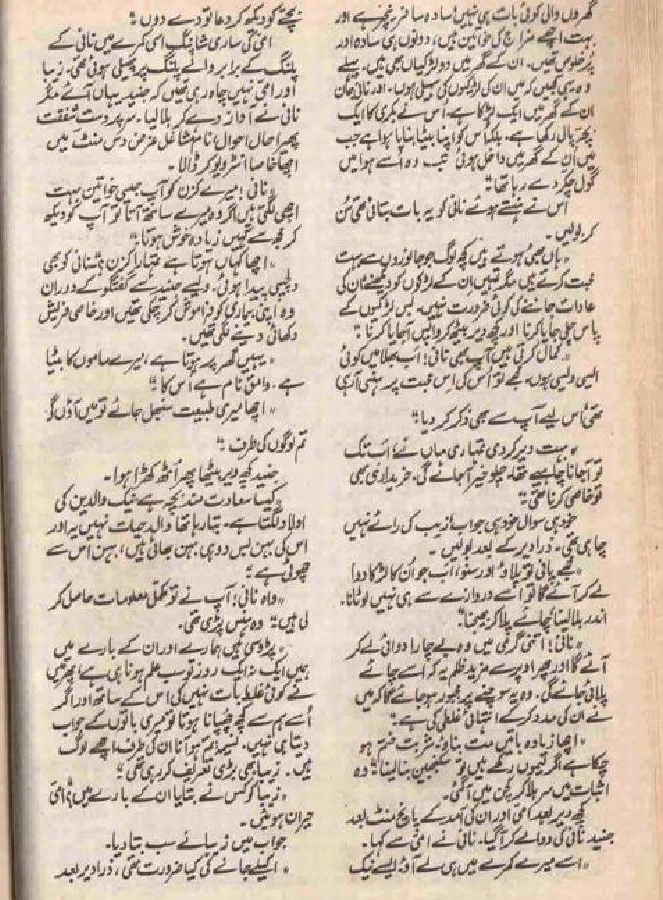 گھروں والی کوئی بات ہی نہیں! سادہ سا فرنیچر ہے اور
بہت اچھے مزاج کی خواتین ہیں، دونوں ہی سادہ اور
پُر خلوص تھیں۔ ان کے گھر میں دو لڑکیاں بھی ہیں۔ پہلے
وہ یہی کہیں کہ میں ان کی لڑکیوں کی سہیلی ہوں۔ اور نانی جان
ان کے گھر میں ایک لڑکا ہے، اس نے بکری کا ایک
بچہ پال رکھا ہے۔ بلکہ اس کو اپنا بیٹا بنایا ہوا ہے جب
میں ان کے گھر میں داخل ہوئی، تب وہ اُسے ہوا میں
گول چکر دے رہا تھا۔"
اس نے ہنستے ہوئے نانی کو یہ بات بتائی تھی سُن
کر بولیں۔
"ہاں بھئی ہوتے ہیں کچھ لوگ جو جانوروں سے بہت
محبت کرتے ہیں مگر تمہیں ان کے لڑکوں کو دیکھنے ان کی
عادات جاننے کی کوئی ضرورت نہیں۔ بس لڑکیوں کے
پاس چلی جایا کرنا اور کچھ دیر بیٹھ کر واپس آ جایا کرنا۔"
"کمال کرتی ہیں آپ بھی نانی! اب بھلا میں کوئی
ایسی ویسی ہوں۔ مجھے تو اس کی اس محبت پر ہنسی آ رہی
تھی اُس لیے آپ سے بھی ذکر کر دیا۔"
"بہت دیر کر دی تمہاری ماں نے اب تک
تو آ جانا چاہیے تھا۔ چلو خیر آ جائے گی۔ خریداری بھی
تو خاصی کرنا تھی۔"
خود ہی سوال خود ہی جواب! زیب کی رائے نہیں
چاہی تھی۔ ذرا دیر کے بعد بولیں۔
"مجھے پانی تو پلاؤ اور سنو، اب جو اُن کا لڑکا دوا
لے کر آئے گا تو اُسے دروازے سے ہی نہیں لوٹانا۔
اندر بلا لینا چائے پلا کر بھیجنا۔"
"نانی! اتنی گرمی میں وہ بے چارا دوائی لے کر
آئے گا اور پھر اوپر سے مزید ظلم یہ کہ اُسے چائے
پلائی جائے گی۔ وہ یہ سوچنے پر مجبور ہو جائے گا کہ میں
نے ان کی مدد کر کے انتہائی غلطی کی ہے۔"
"اچھا زیادہ باتیں مت بناؤ۔ شربت ختم ہو
چکا ہے اگر لیموں رکھے ہیں تو سکنجبین بنا لینا۔" وہ
اثبات میں سر ہلا کر کچن میں آ گئی۔
کچھ دیر بعد امی اور ان کی آمد کے پانچ منٹ بعد
جنید نانی کی دوا لے کر آ گیا۔ نانی نے امی سے کہا۔
"اسے میرے کمرے میں ہی لے آؤ۔ ایسے نیک
بچے کو دیکھ کر دعا تو دے دوں۔"
امی کی ساری شاپنگ اسی کمرے میں نانی کے
پلنگ کے برابر والے پلنگ پر پھیلی ہوئی تھی۔ زیبا
اور امی نہیں چاہ رہی تھیں کہ جنید یہاں آئے مگر
نانی نے آواز دے کر بلا لیا۔ سر پر دست شفقت
پھیرا حال احوال، نام مشاغل غرض دس منٹ میں
اچھا خاصا انٹرویو کر ڈالا۔
"نانی! میرے کزن کو آپ جیسی خواتین بہت
اچھی لگتی ہیں اگر وہ میرے ساتھ آتا تو آپ کو دیکھ
کر مجھ سے کہیں زیادہ خوش ہوتا۔"
"اچھا کہاں ہوتا ہے تمہارا کزن؟" نانی کو بھی
دلچسپی پیدا ہوئی۔ ویسے جنید سے گفتگو کے دوران
وہ اپنی بیماری کو فراموش کر چکی تھیں اور خاصی فریش
دکھائی دینے لگی تھیں۔
"یہیں گھر پر ہوتا ہے، میرے ماموں کا بیٹا
ہے۔ وامق نام ہے اُس کا۔"
"اچھا میری طبیعت سنبھل جائے تو میں آؤں گی
تم لوگوں کی طرف۔"
جنید کچھ دیر بیٹھا پھر اُٹھ کھڑا ہوا۔
"کیسا سعادت مند بچہ ہے نیک والدین کی
اولاد لگتا ہے۔ بتا رہا تھا والد حیات نہیں یہ اور
اس کی بہن بس دو ہی بہن بھائی ہیں، بہن اس سے
چھوٹی ہے۔"
"واہ نانی! آپ نے تو مکمل معلومات حاصل کر
لی ہیں۔" وہ ہنس پڑی تھی۔
"پڑوسی ہیں ہمارے اور ان کے بارے میں
ہمیں ایک نہ ایک روز تو سب علم ہونا ہی ہے! پھر میں
نے کوئی غلط بات نہیں کی اس کے ساتھ اور اگر
اُسے ہم سے کچھ چُھپانا ہوتا تو میری باتوں کے جواب
دیتا ہی نہیں۔ تم ہو آنا ان کی طرف اچھے لوگ
ہیں۔ زیبا بھی بڑی تعریف کر رہی تھی۔"
"زیبا کو کس نے بتایا ان کے بارے میں؟" امی
حیران ہوئیں۔
جواب میں زیبا نے سب بتا دیا۔
"اکیلے جانے کی کیا ضرورت تھی، ذرا دیر بعد